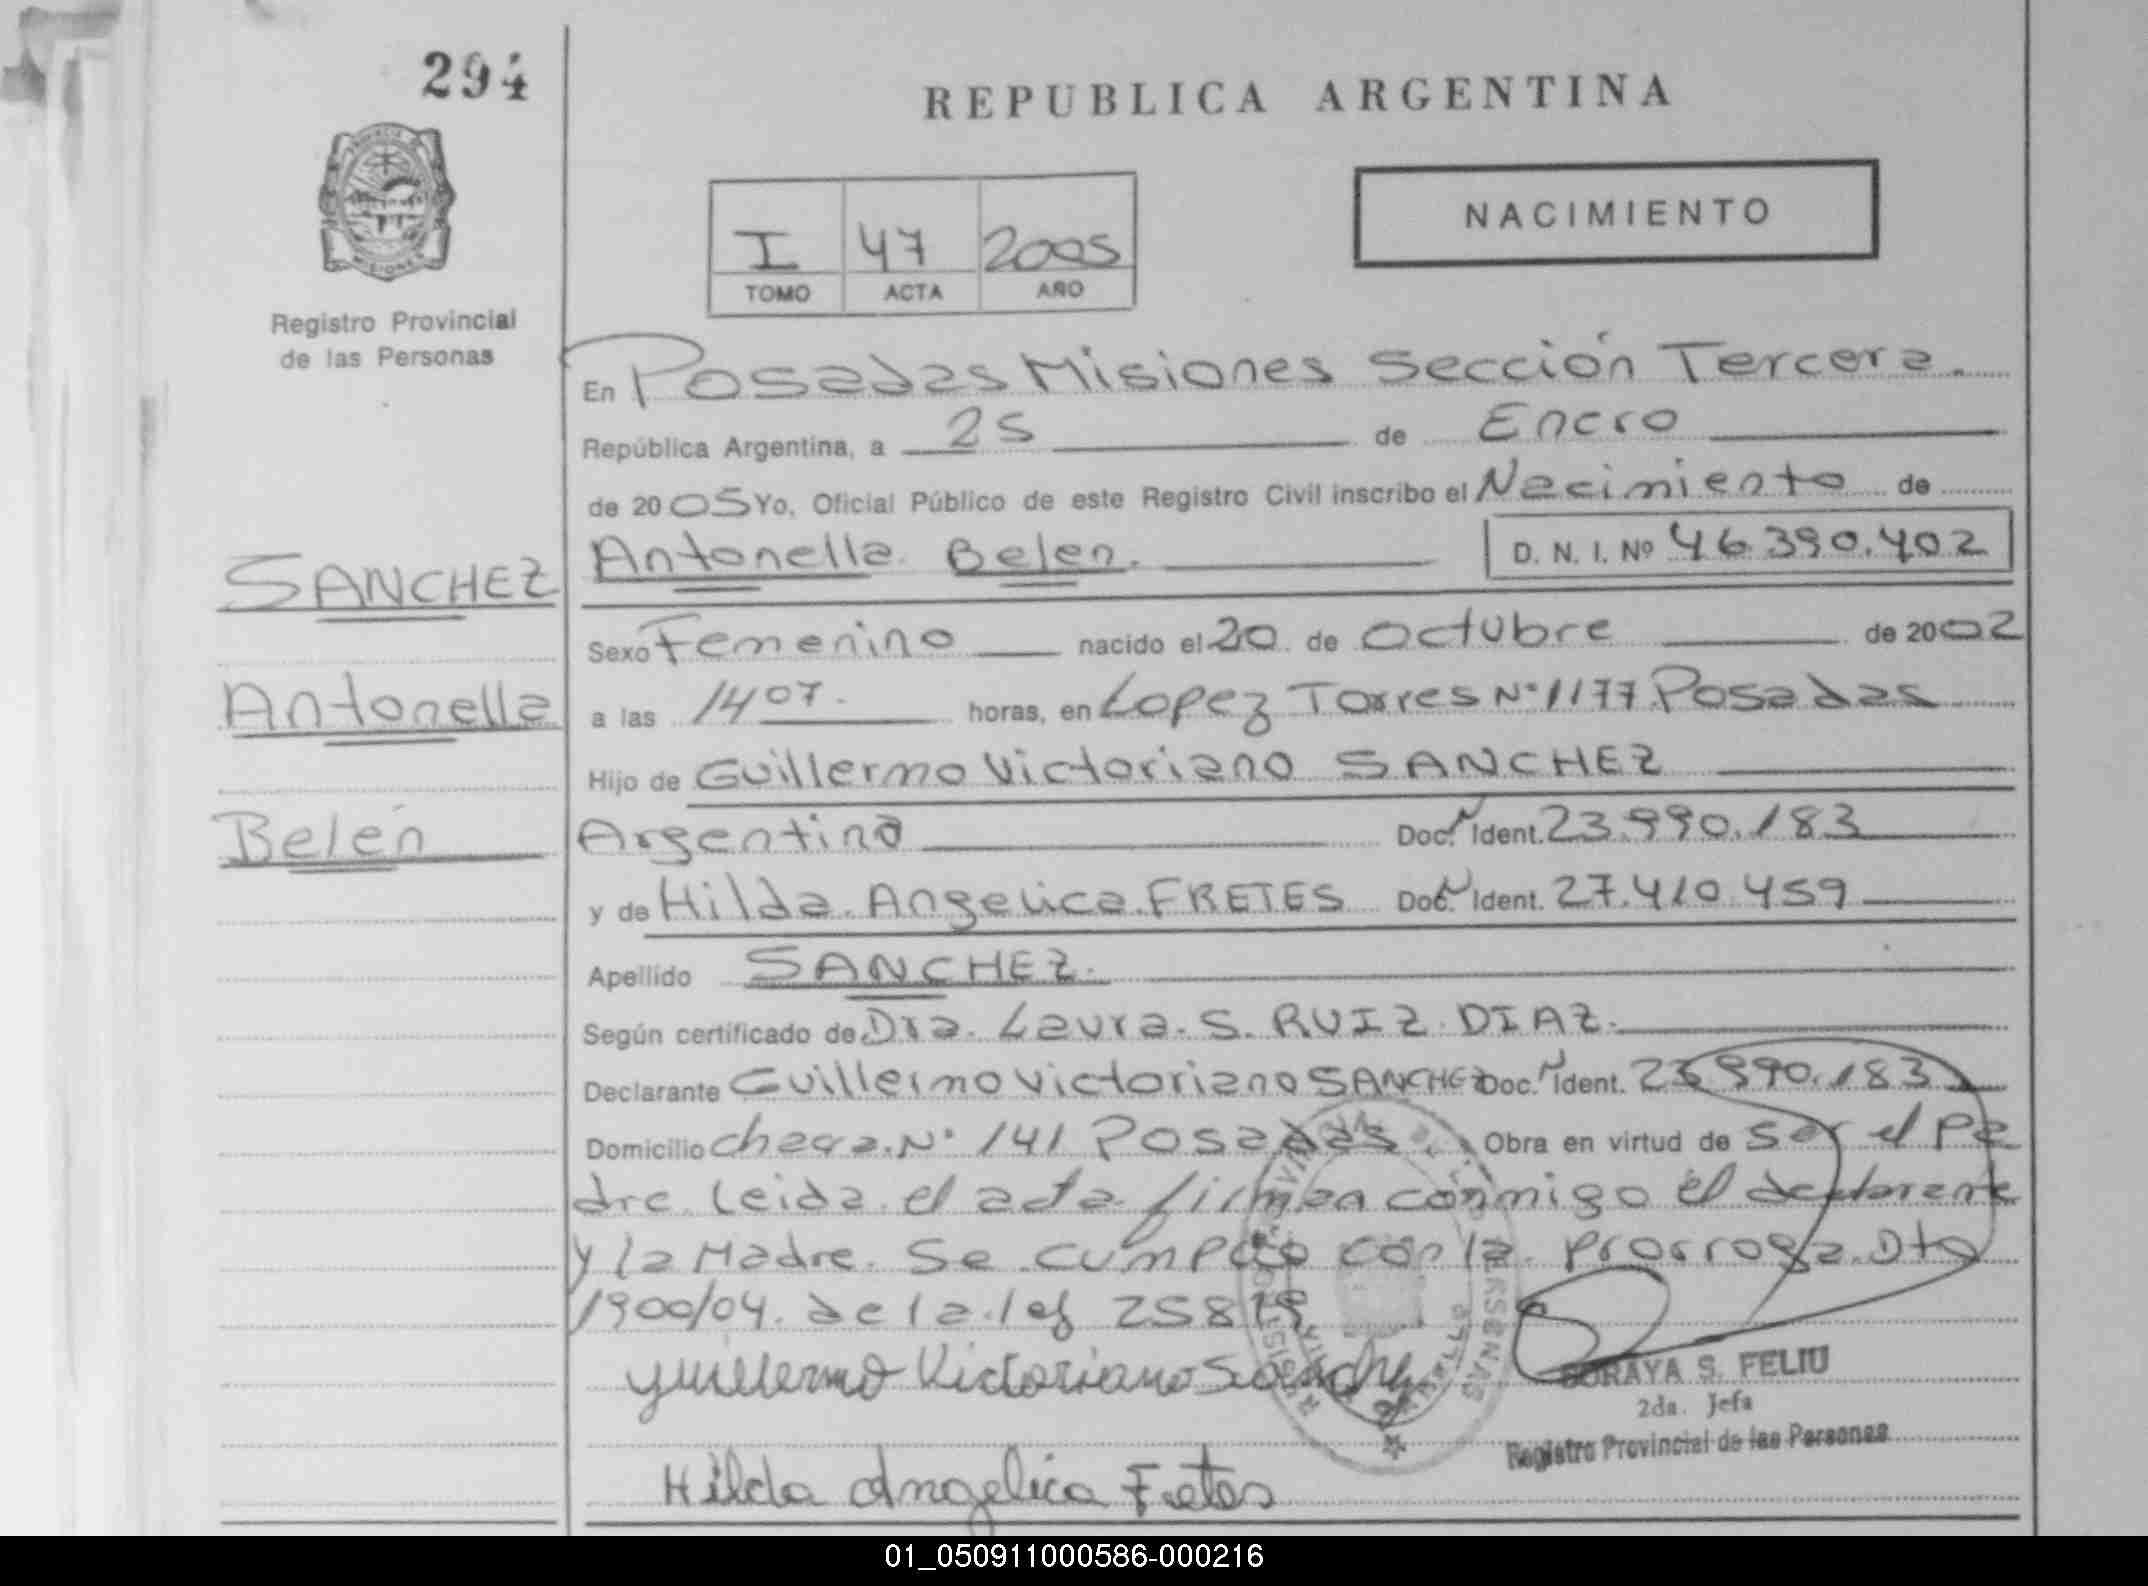 294
REPUBLICA ARGENTINA
PROVINCIA DE
MISIONES
Registro Provincial
de las Personas
I 47 2005
TOMO ACTA AÑO
NACIMIENTO
En Posadas Misiones Sección Tercera.
República Argentina, a 25 de Enero
de 2005 Yo, Oficial Público de este Registro Civil inscribo el Nacimiento de
SANCHEZ
Antonella
Belén
Antonella Belen. D. N. I. Nº 46.390.402
Sexo Femenino nacido el 20 de Octubre de 2002
a las 14 07. horas, en Lopez Torres Nº 1177 Posadas
Hijo de Guillermo Victoriano SANCHEZ
Argentina Doc. N Ident. 23.990.183
y de Hilda Angelica FRETES Doc. N Ident. 27.410.459
Apellido SANCHEZ.
Según certificado de Dra. Laura S. RUIZ DIAZ.
Declarante Guillermo Victoriano SANCHEZ Doc. N Ident. 23.990.183
Domicilio Nº 141 Posadas. Obra en virtud de ser el Pa
dre. Leida el acta firman conmigo el declarante
y la Madre. Se cumplio con la Prorroga Dto
1900/04 de la ley 25819
Guillermo Victoriano Sanchez
SORAYA S. FELIU
2da. Jefa
Registro Provincial de las Personas
Hilda Angelica Fretes
01_050911000586-000216